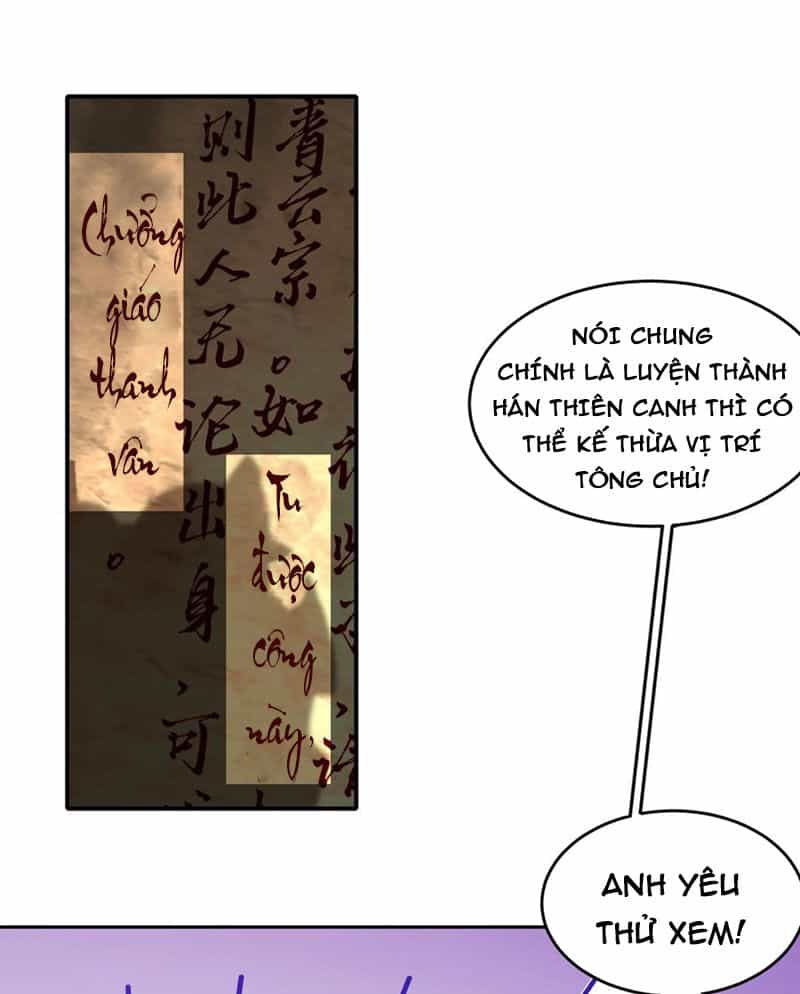 青云宗。如
则此人无论出身，可
Chưởng
giáo
thanh
vân
Tu
được
công
này,
NÓI CHUNG
CHÍNH LÀ LUYỆN THÀNH
HÁN THIÊN CANH THÌ CÓ
THỂ KẾ THỪA VỊ TRÍ
TÔNG CHỦ!
ANH YÊU
THỬ XEM!